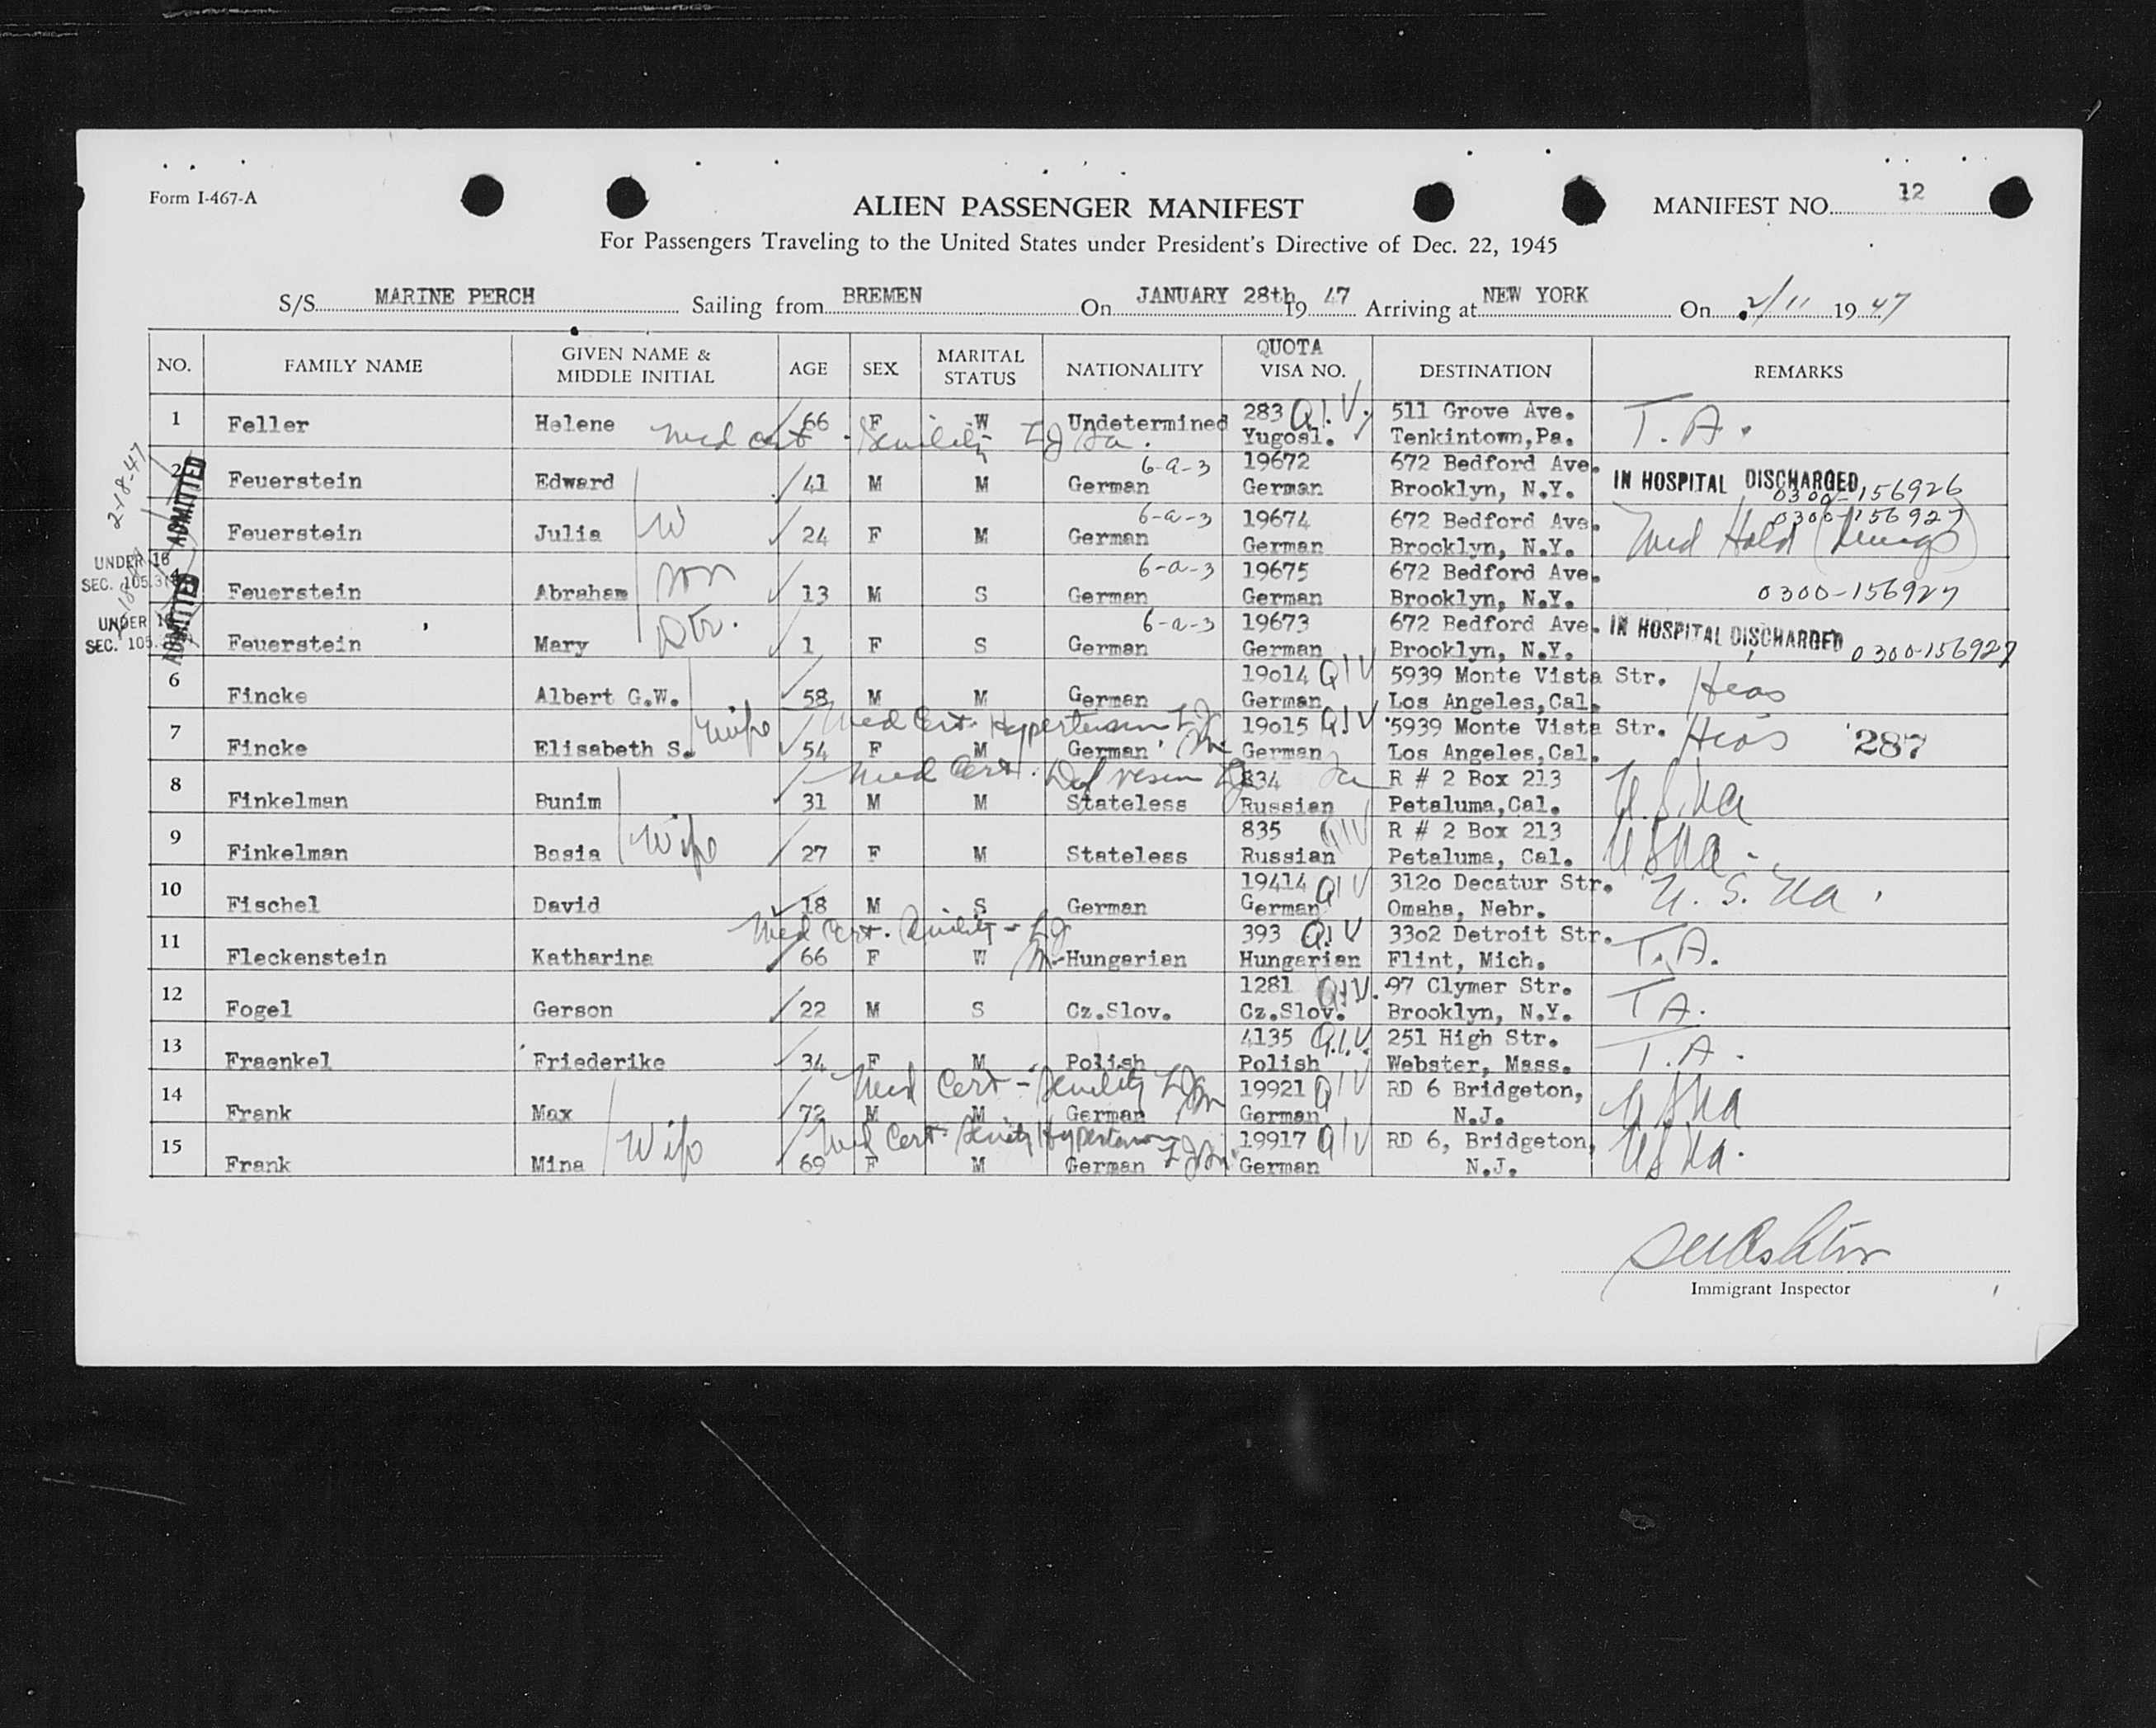 Form I-467-A
ALIEN PASSENGER MANIFEST
MANIFEST NO. 12
For Passengers Traveling to the United States under President's Directive of Dec. 22, 1945
S/S MARINE PERCH Sailing from BREMEN On JANUARY 28th 19 47 Arriving at NEW YORK On 2/11 19 47
NO. FAMILY NAME GIVEN NAME & MIDDLE INITIAL AGE SEX MARITAL STATUS NATIONALITY QUOTA VISA NO. DESTINATION REMARKS
1 Feller Helene 66 F W Undetermined 283 Q.I.V. Yugosl. 511 Grove Ave. Tenkintown,Pa. T.A.
Med cert. Senility
2-18-47
ADMITTED
2 Feuerstein Edward 41 M M German 6-a-3 19672 German 672 Bedford Ave. Brooklyn, N.Y. IN HOSPITAL DISCHARGED 0300-156926
Feuerstein Julia W 24 F M German 6-a-3 19674 German 672 Bedford Ave. Brooklyn, N.Y. 0300-156927 Med Hold (Lungs)
UNDER 16
SEC. 105.3
ADMITTED
4 Feuerstein Abraham son 13 M S German 6-a-3 19675 German 672 Bedford Ave. Brooklyn, N.Y. 0300-156927
UNDER 16
SEC. 105.
Feuerstein Mary Dtr. 1 F S German 6-a-3 19673 German 672 Bedford Ave. Brooklyn, N.Y. IN HOSPITAL DISCHARGED 0300-156927
6 Fincke Albert G.W. 58 M M German 19o14 QIV German 5939 Monte Vista Str. Los Angeles,Cal. Hias
Med Cert. Hypertension
7 Fincke Elisabeth S. wife 54 F M German 19o15 QIV German 5939 Monte Vista Str. Los Angeles,Cal. Hias 287
Med Cert.
8 Finkelman Bunim 31 M M Stateless 834 Russian R # 2 Box 213 Petaluma,Cal. U.S.Na
9 Finkelman Basia Wife 27 F M Stateless 835 QIV Russian R # 2 Box 213 Petaluma, Cal. USNa.
10 Fischel David 18 M S German 19414 QIV German 312o Decatur Str. Omaha, Nebr. U.S.Na.
Med Cert. Senility
11 Fleckenstein Katharina 66 F W Hungarian 393 Q.I.V Hungarian 33o2 Detroit Str. Flint, Mich. T.A.
12 Fogel Gerson 22 M S Cz.Slov. 1281 Q.I.V. Cz.Slov. 97 Clymer Str. Brooklyn, N.Y. T A.
13 Fraenkel Friederike 34 F M Polish 4135 Q.I.V. Polish 251 High Str. Webster, Mass. T.A.
Med Cert - Senility
14 Frank Max 72 M M German 19921 QIV German RD 6 Bridgeton, N.J. USNa
Med Cert. Senility Hypertension
15 Frank Mina Wife 69 F M German 19917 QIV German RD 6, Bridgeton, N.J. USNa.
Immigrant Inspector